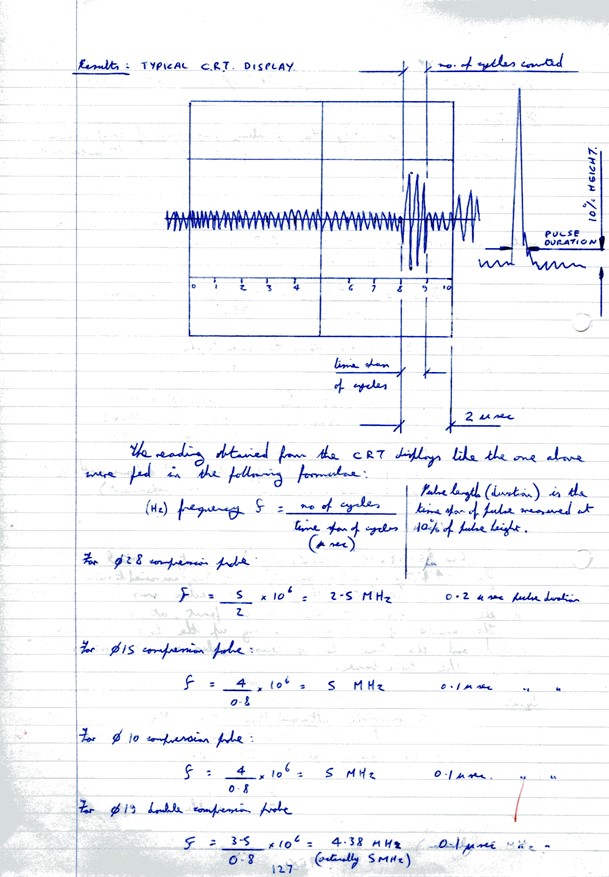 Results: TYPICAL C.R.T. DISPLAY.
no. of cycles counted
10% HEIGHT.
PULSE
DURATION
0 1 2 3 4 6 7 8 9 10
time span
of cycles
2 μ sec
The reading obtained from the CRT displays like the one above
were fed in the following formulae:
(Hz) frequency f = no of cycles
time span of cycles
(μ sec)
Pulse length (duration) is the
time span of pulse measured at
10% of pulse height.
For ø28 compression probe
f = 5/2 × 10⁶ = 2.5 MHz 0.2 μ sec pulse duration
For ø15 compression probe:
f = 4/0.8 × 10⁶ = 5 MHz 0.1 μ sec " "
For ø 10 compression probe:
f = 4/0.8 × 10⁶ = 5 MHz 0.1 μ sec. " "
For ø19 double compression probe
f = 3.5/0.8 × 10⁶ = 4.38 MHz 0.1 μ sec "
(actually 5MHz)
127